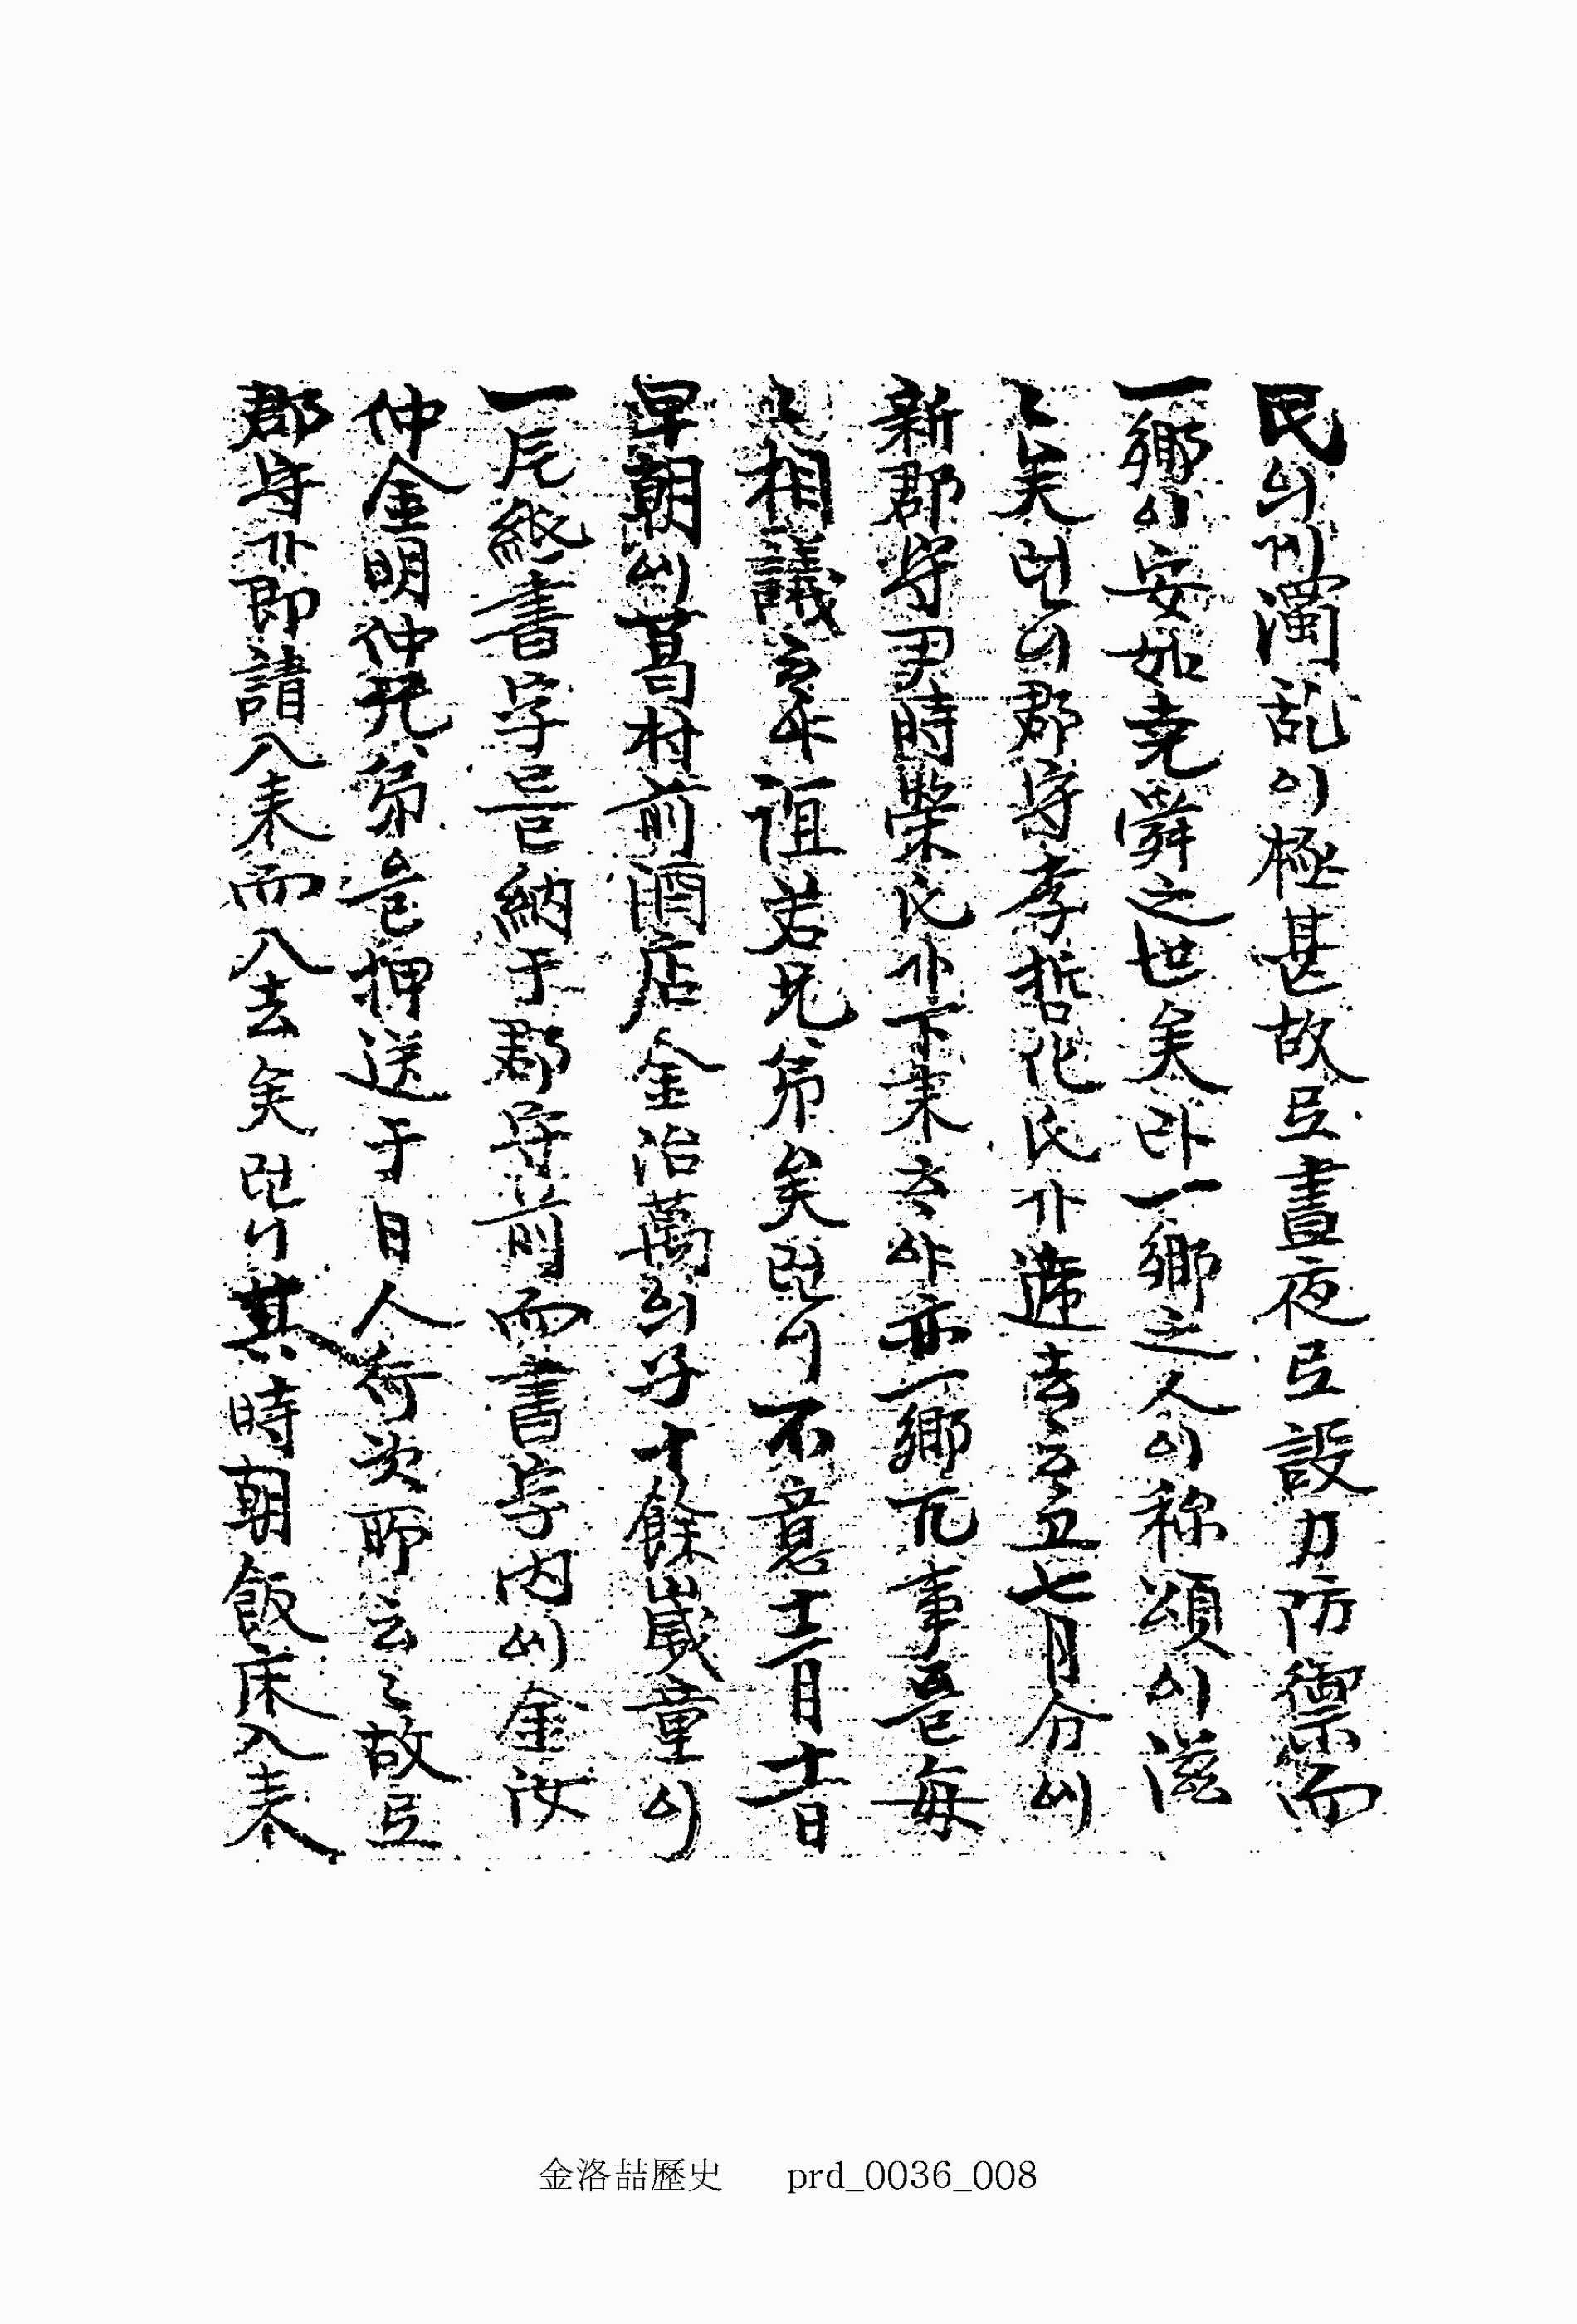 民의게濁乱이極甚故로晝夜로設力防禦而
一鄕이安如堯舜之世矣라一鄕之人이称頌이滋
〻矣러니郡守李哲化氏가遞去고五七月分에
新郡守尹時榮氏가下来야亦一鄕凡事를每
〻相議야誼若兄弟矣러니不意十二月十一日
早朝에葛村前酒店金治萬의子十餘歲童이
一片紙書字를納于郡守前而書字內에金汝
仲金明仲兄弟를押送于日人荷次郞云〻故로
郡守가卽請入来而入去矣러니其時朝飯床入来
金洛喆歷史 prd_0036_008